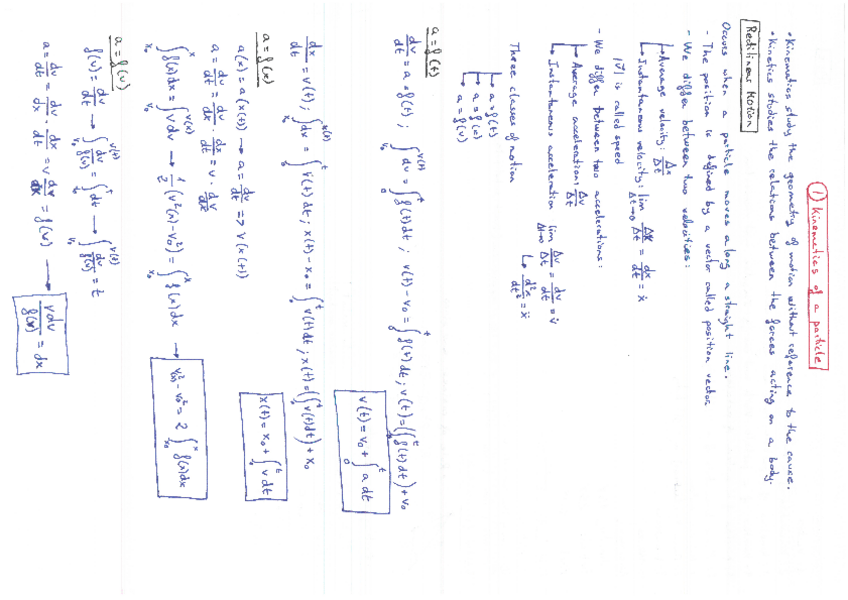 ① Kinematics of a particle
• Kinematics study the geometry of motion without reference to the cause.
• Kinetics studies the relations between the forces acting on a body.
Rectilinear Motion
Occurs when a particle moves along a straight line.
- The position is defined by a vector called position vector
- We differ between two velocities:
→ Average velocity: Δx/Δt
→ Instantaneous velocity: lim Δt→0 Δx/Δt = dx/dt = ẋ
|v⃗| is called speed
- We differ between two accelerations:
→ Average acceleration: Δv/Δt
→ Instantaneous acceleration lim Δt→0 Δv/Δt = dv/dt = v̇
↳ d²x/dt² = ẍ
Three classes of motion
→ a = f(t)
→ a = f(x)
→ a = f(v)
a = f(t)
dv/dt = a = f(t) ; ∫_{v₀}^{v(t)} dv = ∫_0^t f(t) dt ; v(t) - v₀ = ∫^t f(t) dt ; v(t) = (∫^t f(t) dt) + v₀
v(t) = v₀ + ∫_0^t a dt
dx/dt = v(t) ; ∫_{x₀}^{x(t)} dv = ∫^t v(t) dt ; x(t) - x₀ = ∫^t v(t) dt ; x(t) = (∫^t v(t) dt) + x₀
x(t) = x₀ + ∫^t v dt
a = f(x)
a(x) = a(x(t)) → a = dv/dt => v(x(t))
a = dv/dt = dv/dx · dx/dt = v · dv/dx
∫_{x₀}^x f(x) dx = ∫_{v₀}^{v(x)} v dv → 1/2 (v²(x) - v₀²) = ∫_{x₀}^x f(x) dx →
v²(x) - v₀² = 2 ∫_{x₀}^x f(x) dx
a = f(v)
f(v) = dv/dt → ∫_{v₀}^{v(t)} dv/f(v) = ∫^t dt → ∫_{v₀}^{v(t)} dv/f(v) = t
a = dv/dt = dv/dx · dx/dt = v dv/dx = f(v) → v dv/f(v) = dx